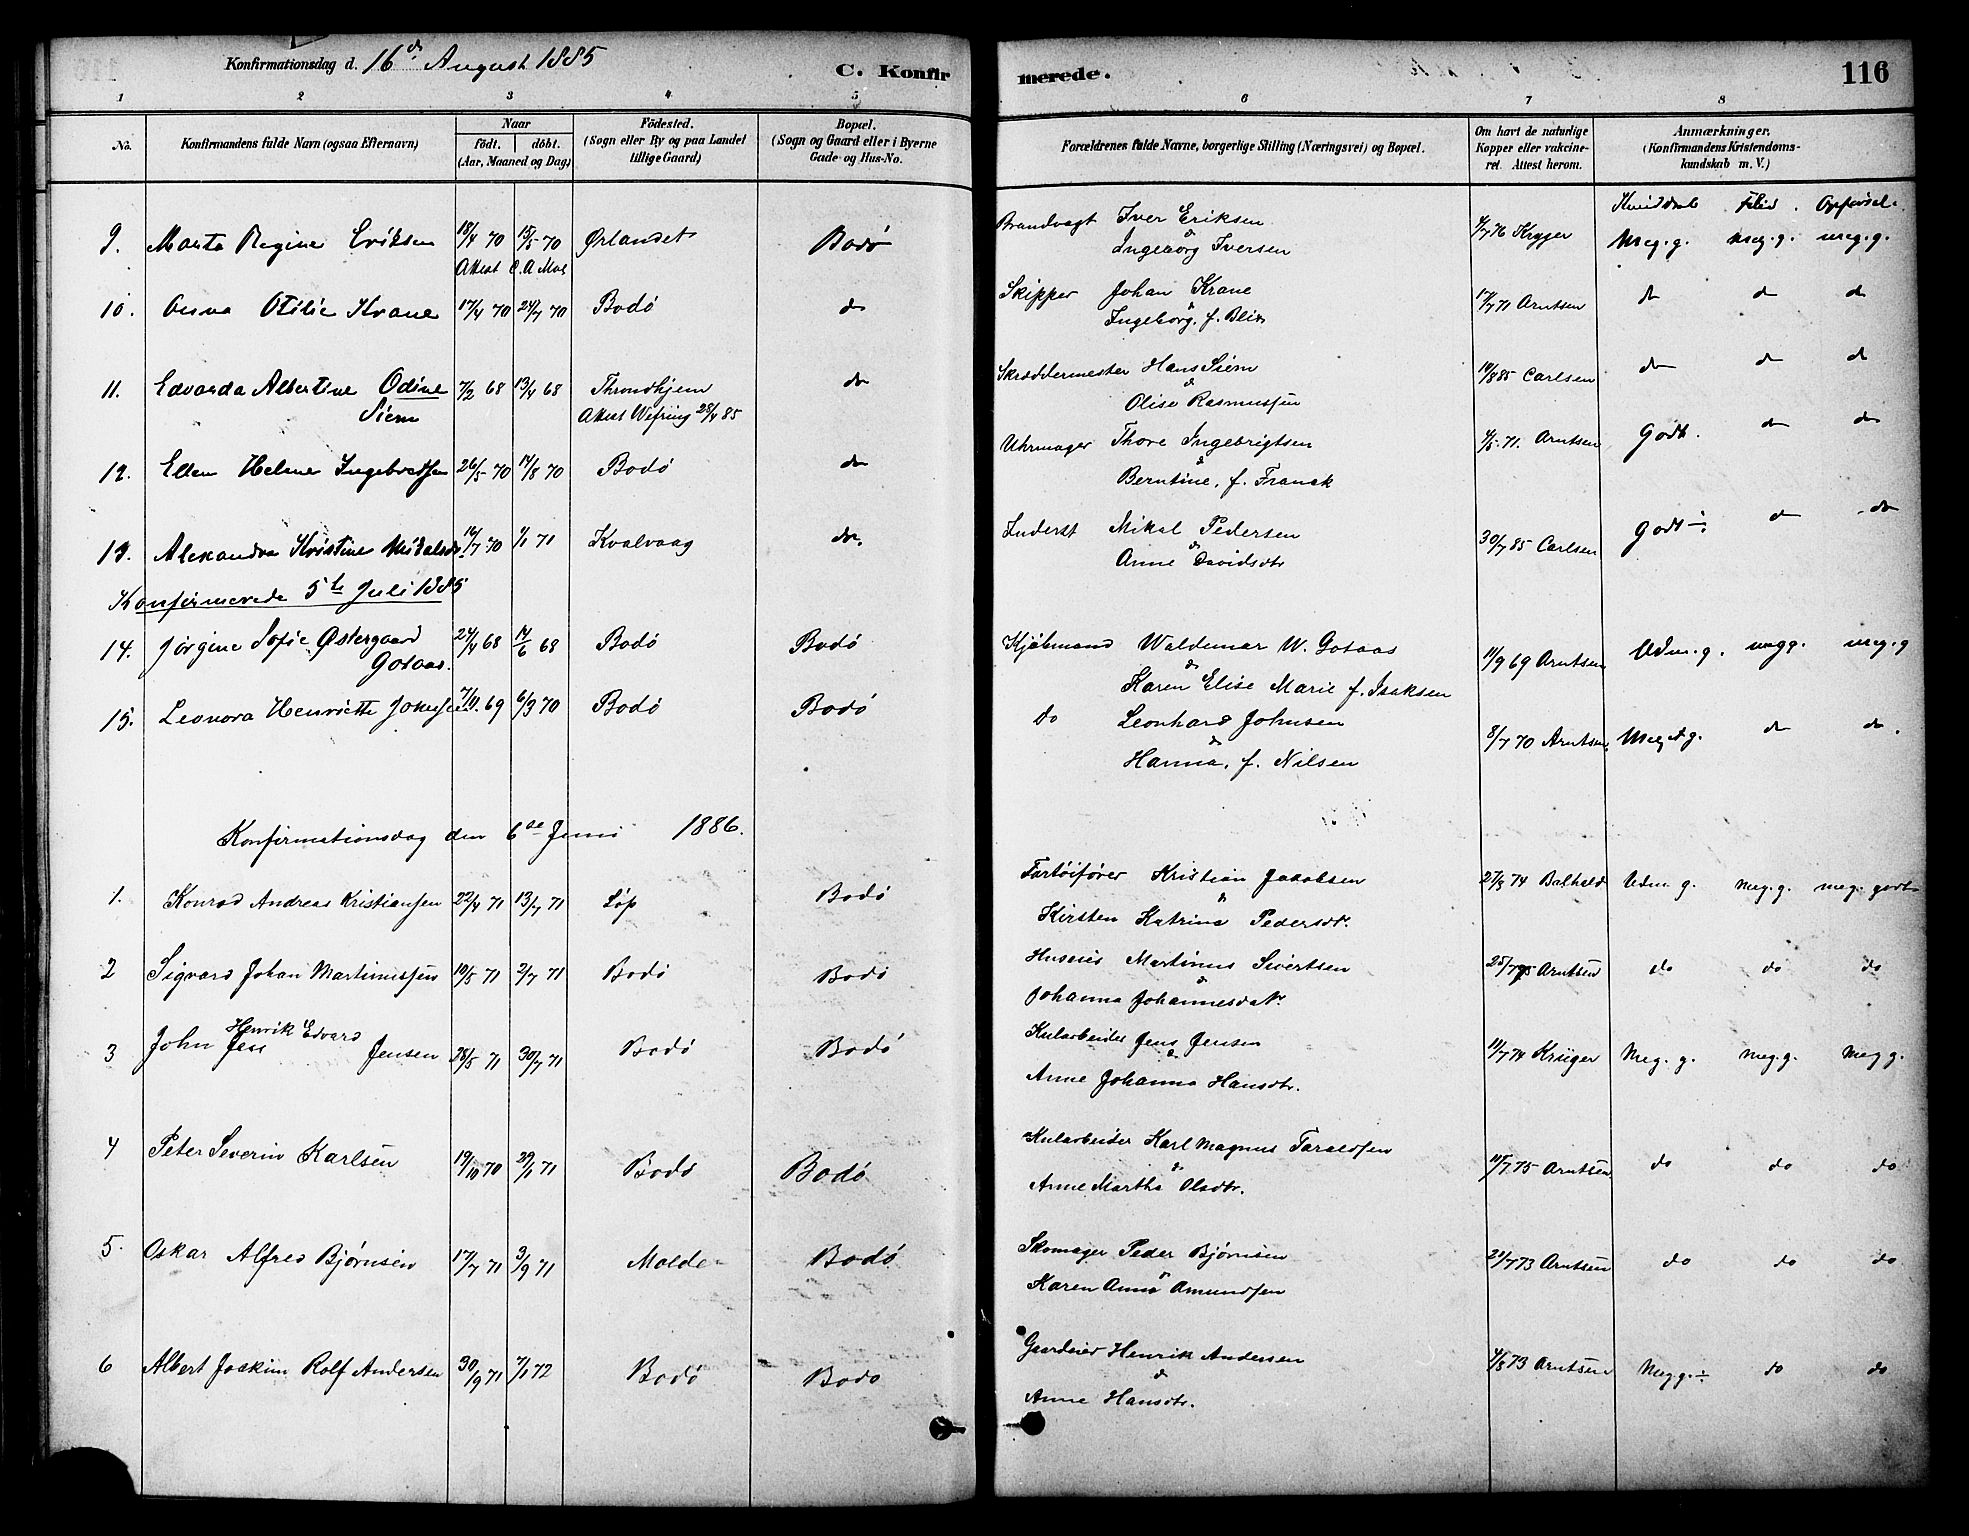 Konfirmationsdag d. 16de August 1885
C. Konfirmerede.
116
1 2 3 4 5 6 7 8
No.
Konfirmandens fulde Navn (ogsaa Efternavn)
Naar
födt. döbt.
(Aar, Maaned og Dag)
Födested.
(Sogn eller By og paa Landet
tillige Gaard)
Bopæl.
(Sogn og Gaard eller i Byerne
Gade- og Hus-No.
Forældrenes fulde Navne, borgerlige Stilling (Næringsvei) og Bopæl.
Om havt de naturlige
Kopper eller vakcine-
ret. Attest herom.
Anmærkninger,
(Konfirmandens Kristendoms-
kundskab m. V.)
Kundskab Flid. Opførsel.
9. Marta Regine Eriksen 18/4 70 15/5 70 Ørlandet Bodø Brandvagt Iver Eriksen 4/7 76 Kryger Meg. g. meg. g. meg. g.
Attest C. A. Moe
& Ingeborg Iversen
10. Anna Otilie Krane 17/4 70 24/7 70 Bodø do Skipper Johan Krane 17/7 71 Arntsen do do do
& Ingeborg, f. Blix
11. Edvarda Albertine Odine 7/2 68 13/4 68 Throndhjem do Skræddermester Hans Siem 19/8 85 Carlsen do do do
Siem Attest Wefring 28/4 85
& Olise Rasmussen
12. Ellen Helene Ingebretsen 26/5 70 14/8 70 Bodø do Uhrmager Thore Ingebrigtsen 4/5 71. Arntsen Godt. do do
& Berntine, f. Franck
13. Alexandra Kristine Mikalsdr. 16/7 70 1/1 71 Kvalvaag do. Inderst Mikal Pedersen 30/7 85 Carlsen Godt ÷ do do
& Anne Davidsdtr
Konfirmerede 5te Juli 1885
14. Jørgine Sofie Østergaard 24/4 68 14/6 68 Bodø Bodø Kjøbmand Waldemar W. Gotaas 11/9 69 Arntsen Udm. g. megg. meg. g
Gotaas.
& Karen Elise Marie f. Isaksen
15. Leonora Henriette Johnsen 7/11. 69 6/3 70 Bodø Bodø do Leonhard Johnsen 8/7 70 Arntsen, Meg. g. do do.
& Hanna, f. Nilsen
Konfirmationsdag den 6de Juni 1886.
1. Konrad Andreas Kristiansen 22/4 71 13/7 71 Løp Bodø Fartøifører Kristian Jakobsen 27/8 74 Balheld Udm. g. meg. g. meg. godt
& Kirsten Katrine Pedersdt.
2 Sigvard Johan Martinussen 19/5 71 2/7 71 Bodø Bodø Huseier Martinus Sivertsen 25/7 75 Arntsen do do do
& Johanna Johannesdatr.
3 John Henrik Edvard Jensen 28/5 71 30/7 71 Bodø Bodø Kularbeider Jens Jensen 11/7 74 Krüger Meg. g. meg. g. Meg g.
& Anne Johanna Hansdtr.
4 Peter Severin Karlsen 19/10 70 29/1 71 Bodø Bodø Kularbeider Karl Magnus Taraldsen 11/7 75 Arntsen do do do
& Anne Martha Olsdtr.
5. Oskar Alfred Bjørnsen 17/7 71 3/9 71 Molde Bodø Skomager Peder Bjørnsen 21/7 73 Arntsen do do do
& Karen Anna Amundsen
6 Albert Joakim Rolf Andersen 30/9 71 7/1 72 Bodø Bodø Gaardeier Henrik Andersen 4/8 73 Arntsen Meg g. ÷ do do
& Anne Hansdtr.